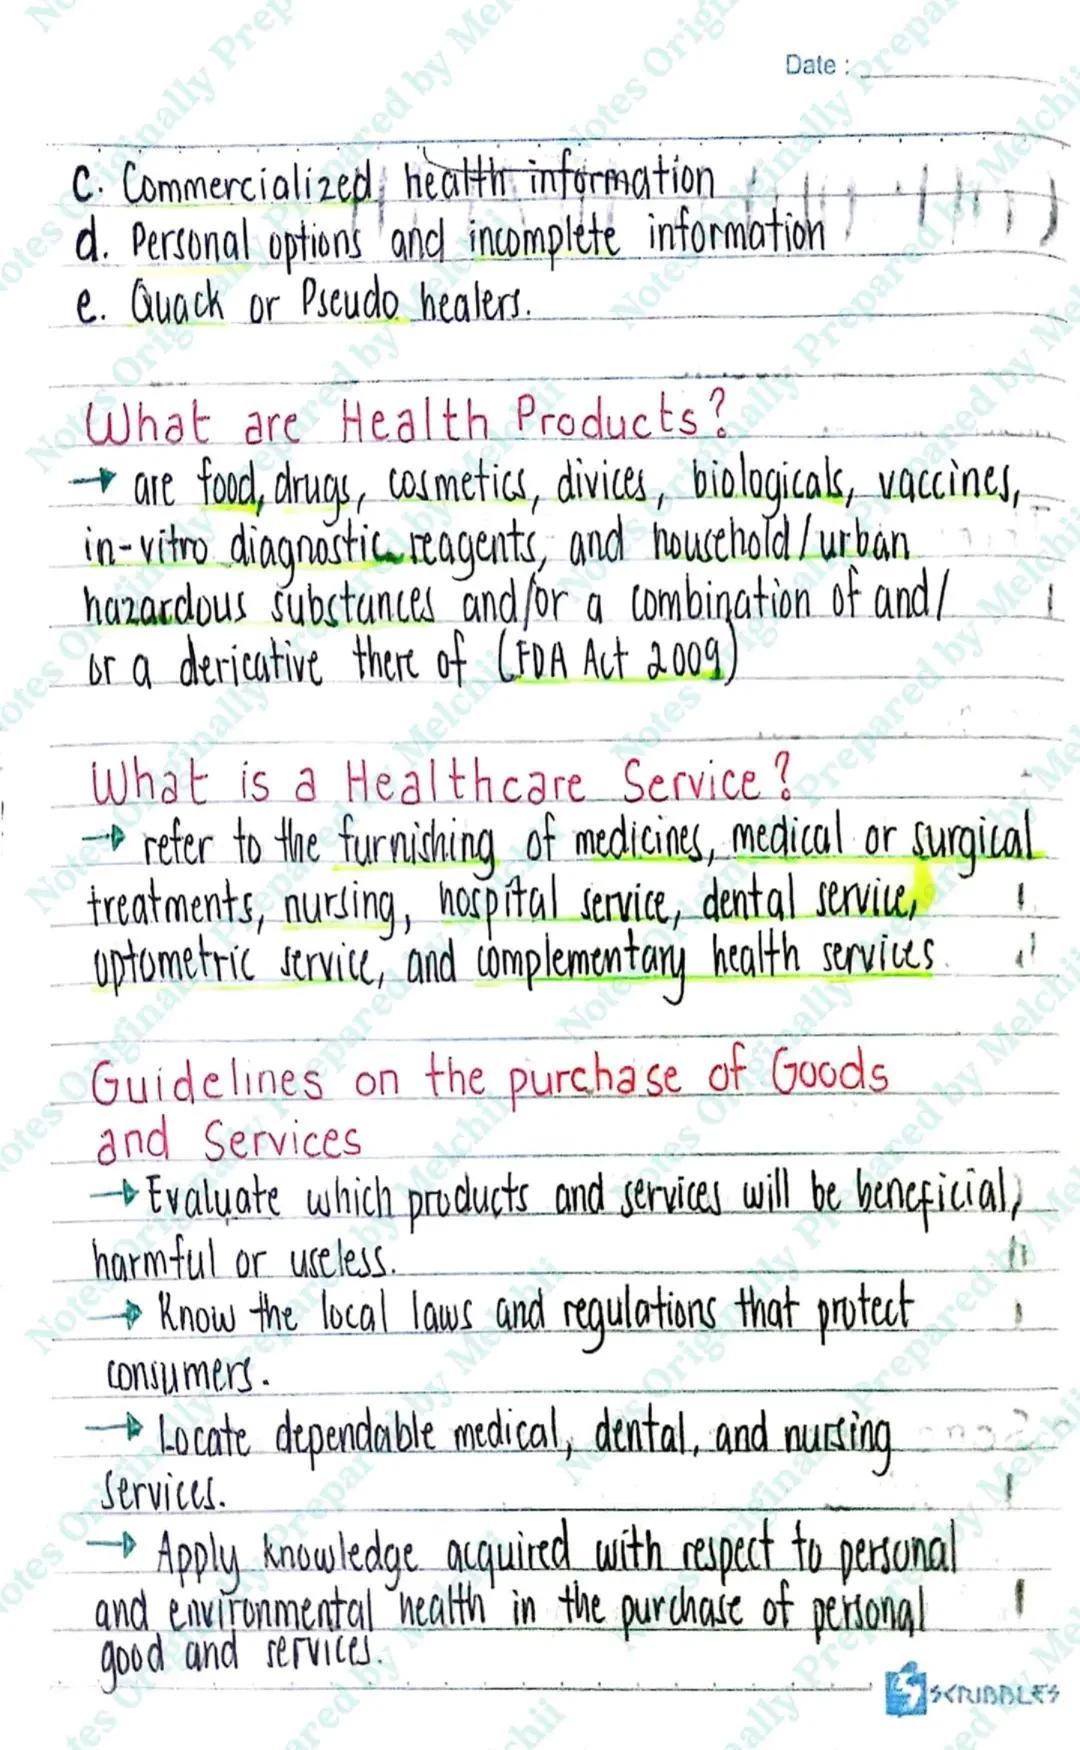 Date :
c. Commercialized health information
d. Personal options and incomplete information
e. Quack or Pseudo healers.
What are Health Products?
→ are food, drugs, cosmetics, divices, biologicals, vaccines,
in-vitro diagnostic reagents, and household/urban
hazardous substances and/or a combination of and/
or a dericative there of (FDA Act 2009)
What is a Healthcare Service?
→ refer to the furnishing of medicines, medical or surgical
treatments, nursing, hospital service, dental service,
optometric service, and complementary health services.
Guidelines on the purchase of Goods
and Services
→ Evaluate which products and services will be beneficial,
harmful or useless.
→ Know the local laws and regulations that protect
consumers.
→ Locate dependable medical, dental, and nursing
services.
→ Apply knowledge acquired with respect to personal
and environmental health in the purchase of personal
good and services.
SCRIBBLES
Notes Originally Prepared by Melchii